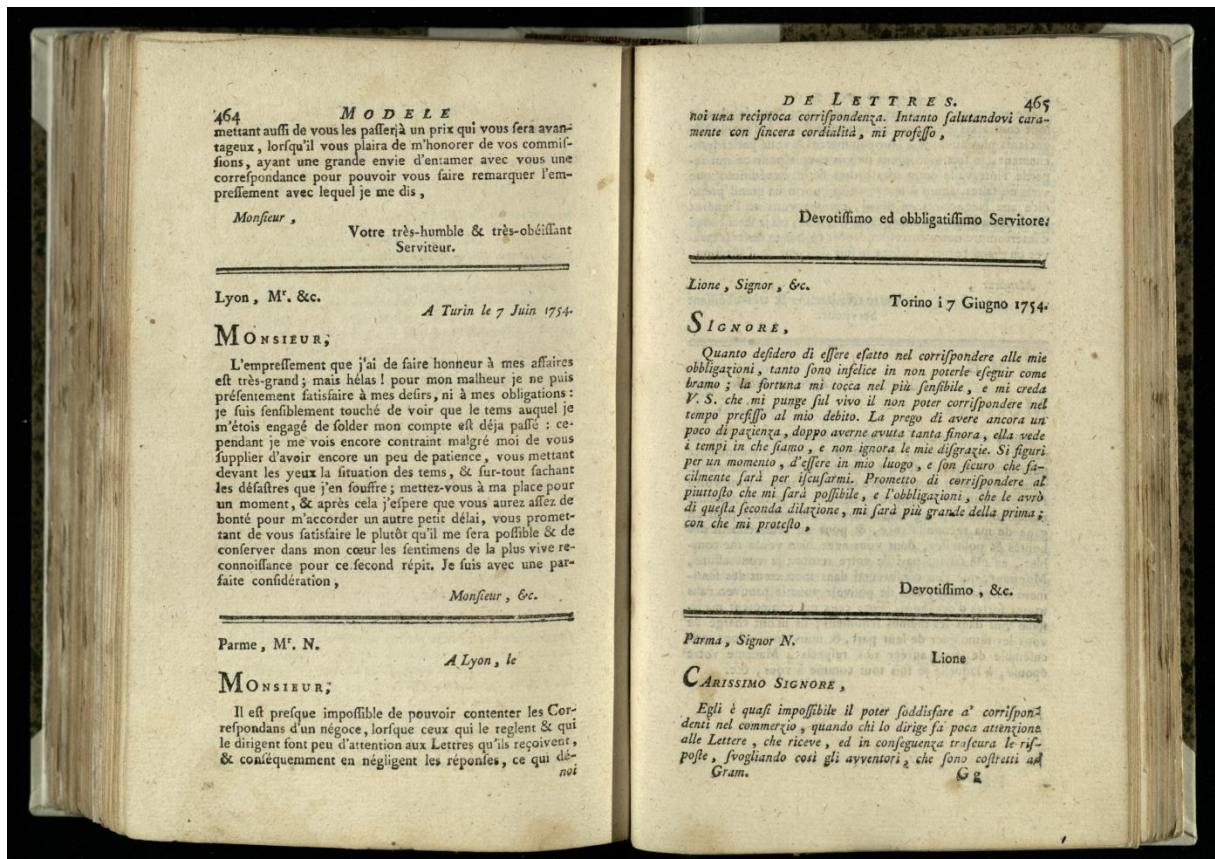 464 MODELE
mettant auſſi de vous les paſſerjà un prix qui vous ſera avan-
tageux, lorſqu'il vous plaira de m'honorer de vos commiſ-
ſions, ayant une grande envie d'entamer avec vous une
correſpondance pour pouvoir vous faire remarquer l'em-
preſſement avec lequel je me dis,
Monſieur,
Votre très-humble & très-obéiſſant
Serviteur.
Lyon, Mr. &c.
A Turin le 7 Juin 1754.
MONSIEUR,
L'empreſſement que j'ai de faire honneur à mes affaires
eſt très-grand; mais hélas! pour mon malheur je ne puis
préſentement ſatisfaire à mes deſirs, ni à mes obligations:
je ſuis ſenſiblement touché de voir que le tems auquel je
m'étois engagé de ſolder mon compte eſt déja paſſé: ce-
pendant je me vois encore contraint malgré moi de vous
ſupplier d'avoir encore un peu de patience, vous mettant
devant les yeux la ſituation des tems, & ſur-tout ſachant
les déſaſtres que j'en ſouffre; mettez-vous à ma place pour
un moment, & après cela j'eſpere que vous aurez aſſez de
bonté pour m'accorder un autre petit délai, vous promet-
tant de vous ſatisfaire le plutôt qu'il me ſera poſſible & de
conſerver dans mon cœur les ſentimens de la plus vive re-
connoiſſance pour ce ſecond répit. Je ſuis avec une par-
faite conſidération,
Monſieur, &c.
Parme, Mr. N.
A Lyon, le
MONSIEUR,
Il eſt preſque impoſſible de pouvoir contenter les Cor-
reſpondans d'un négoce, lorſque ceux qui le reglent & qui
le dirigent font peu d'attention aux Lettres qu'ils reçoivent,
& conſéquemment en négligent les réponſes, ce qui dé-
noi
DE LETTRES. 465
noi una reciproca corriſpondenza. Intanto ſalutandovi cara-
mente con ſincera cordialità, mi profeſſo,
Devotiſſimo ed obbligatiſſimo Servitore.
Lione, Signor, &c.
Torino i 7 Giugno 1754.
SIGNORE,
Quanto deſidero di eſſere eſatto nel corriſpondere alle mie
obbligazioni, tanto ſono infelice in non poterle eſeguir come
bramo; la fortuna mi tocca nel più ſenſibile, e mi creda
V. S. che mi punge ſul vivo il non poter corriſpondere nel
tempo prefiſſo al mio debito. La prego di avere ancora un
poco di pazienza, doppo averne avuta tanta finora, ella vede
i tempi in che ſiamo, e non ignora le mie diſgrazie. Si figuri
per un momento, d'eſſere in mio luogo, e ſon ſicuro che fa-
cilmente ſarà per iſcuſarmi. Prometto di corriſpondere al
piuttoſto che mi ſarà poſſibile, e l'obbligazioni, che le avrò
di queſta ſeconda dilazione, mi ſarà più grande della prima;
con che mi proteſto,
Devotiſſimo, &c.
Parma, Signor N.
Lione
CARISSIMO SIGNORE,
Egli è quaſi impoſſibile il poter ſoddisfare a' corriſpon-
denti nel commerzio, quando chi lo dirige fà poca attenzione
alle Lettere, che riceve, ed in conſeguenza traſcura le riſ-
poſte, ſvogliando così gli avventori, che ſono coſtretti ad
Gram. Gg